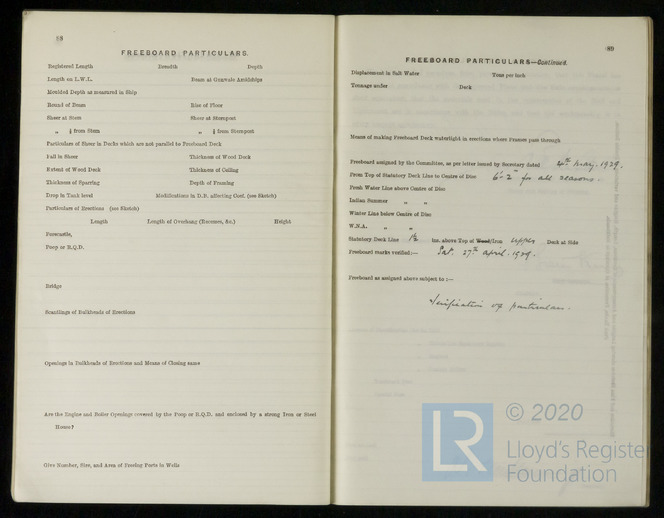 88
FREEBOARD PARTICULARS.
Registered Length Breadth Depth
Length on L.W.L. Beam at Gunwale Amidships
Moulded Depth as measured in Ship
Round of Beam Rise of Floor
Sheer at Stem Sheer at Sternpost
„ ⅛ from Stem „ ⅛ from Sternpost
Particulars of Sheer in Decks which are not parallel to Freeboard Deck
Fall in Sheer Thickness of Wood Deck
Extent of Wood Deck Thickness of Ceiling
Thickness of Sparring Depth of Framing
Drop in Tank level Modifications in D.B. affecting Coef. (see Sketch)
Particulars of Erections (see Sketch)
Length Length of Overhang (Recesses, &c.) Height
Forecastle,
Poop or R.Q.D.
Bridge
Scantlings of Bulkheads of Erections
Openings in Bulkheads of Erections and Means of Closing same
Are the Engine and Boiler Openings covered by the Poop or R.Q.D. and enclosed by a strong Iron or Steel
House?
Give Number, Size, and Area of Freeing Ports in Wells
89
FREEBOARD PARTICULARS—Continued.
Displacement in Salt Water Tons per Inch
Tonnage under Deck
Means of making Freeboard Deck watertight in erections where Frames pass through
Freeboard assigned by the Committee, as per letter issued by Secretary dated 4th May. 1929.
From Top of Statutory Deck Line to Centre of Disc 6'-2" for all seasons.
Fresh Water Line above Centre of Disc
Indian Summer „ „
Winter Line below Centre of Disc
W.N.A. „ „
Statutory Deck Line 1½ ins. above Top of Wood/Iron upper Deck at Side
Freeboard marks verified:— Sat. 27th April. 1929.
Freeboard as assigned above subject to:—
Verification of particulars.
LR
© 2020
Lloyd's Register
Foundation